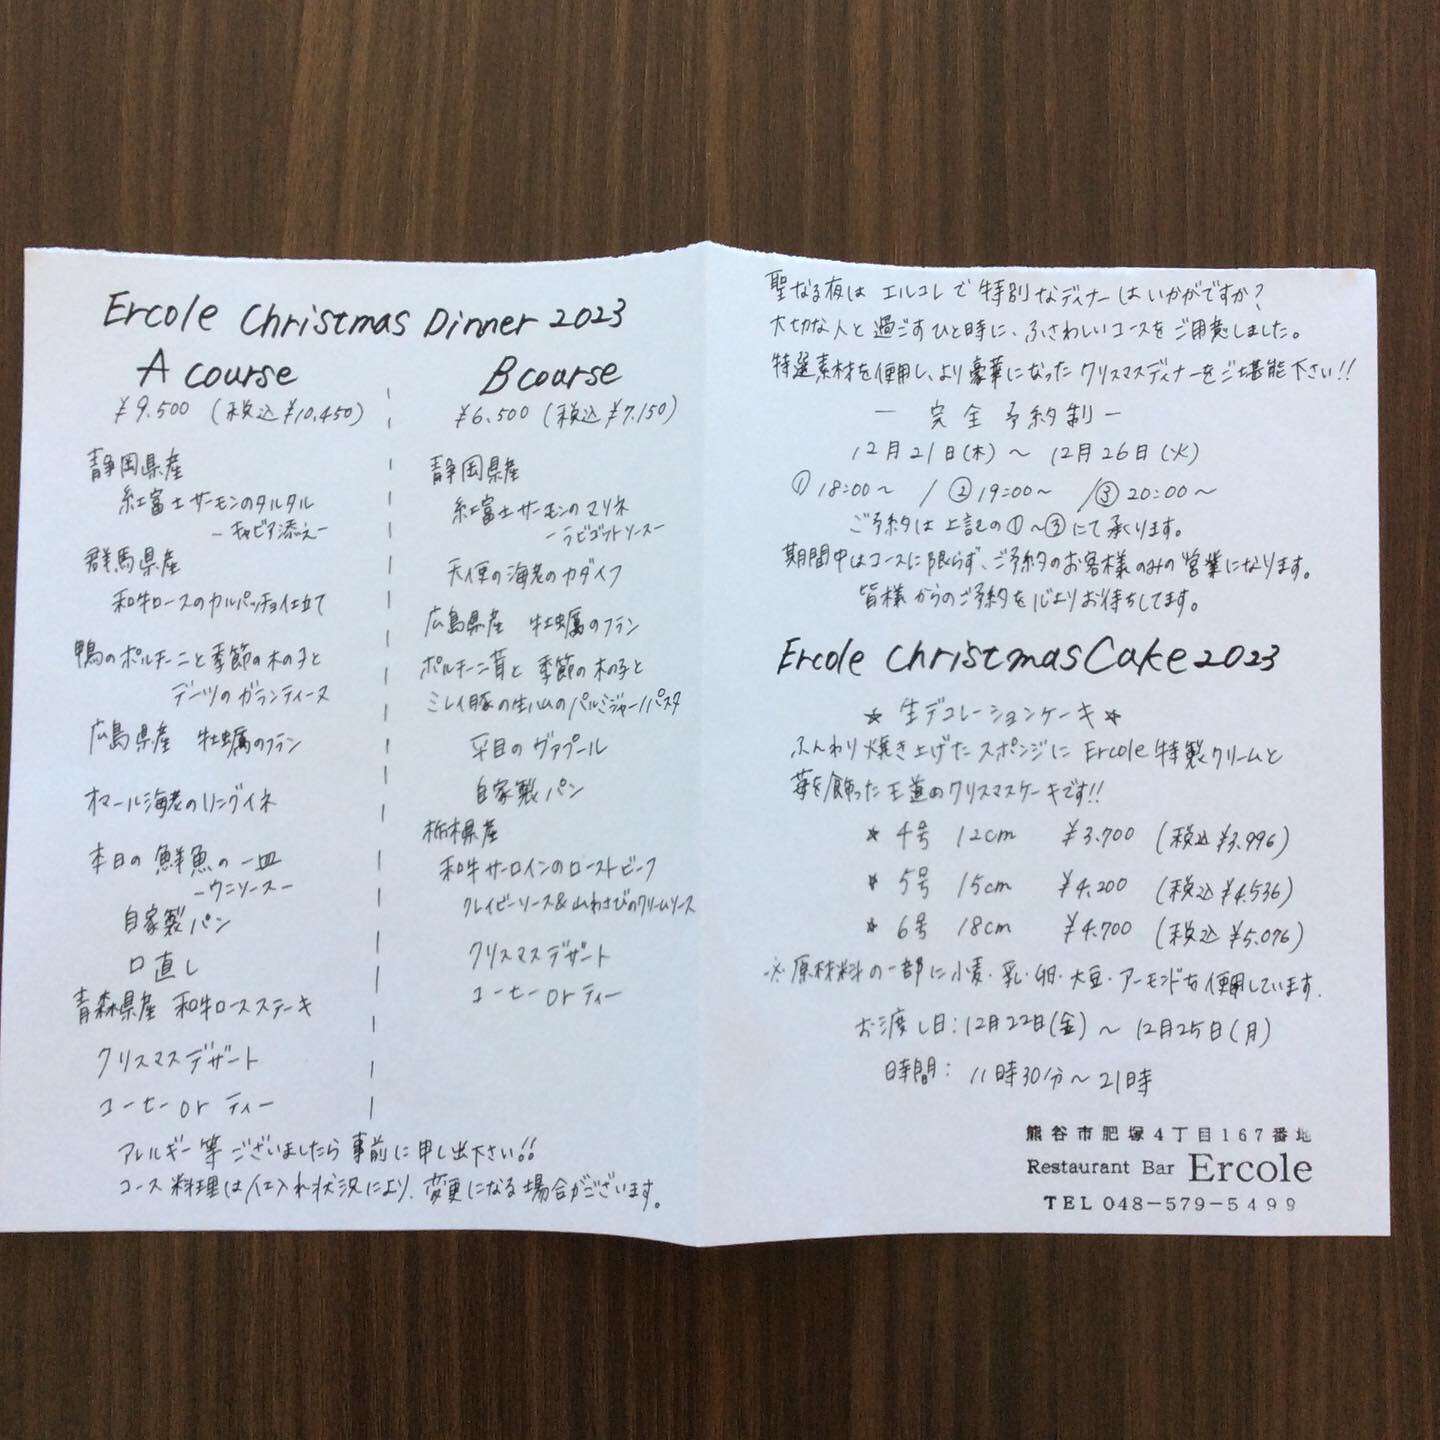 Ercole Christmas Dinner 2023
A course
¥9.500 (税込¥10,450)
静岡県産
紅富士サーモンのタルタル
-キャビア添え-
群馬県産
和牛ロースのカルパッチョ仕立て
鴨のポルチーニと季節の木の子と
デーツのガランティーヌ
広島県産 牡蠣のフラン
オマール海老のリングイネ
本日の鮮魚の一皿
-ウニソース-
自家製パン
口直し
青森県産 和牛ロースステーキ
クリスマスデザート
コーヒー or ティー
B course
¥6.500 (税込¥7.150)
静岡県産
紅富士サーモンのマリネ
-ラビゴットソース-
天使の海老のカダイフ
広島県産 牡蠣のフラン
ポルチーニ茸と季節の木の子と
ミレイ豚の生ハムのパルミジャーノパスタ
平目のヴァプール
自家製パン
栃木県産
和牛サーロインのローストビーフ
グレイビーソース&山わさびのクリームソース
クリスマスデザート
コーヒー or ティー
アレルギー等ございましたら事前に申し出下さい!!
コース料理は仕入れ状況により、変更になる場合がございます。
聖なる夜はエルコレで特別なディナーはいかがですか?
大切な人と過ごすひと時に、ふさわしいコースをご用意しました。
特選素材を使用し、より豪華になったクリスマスディナーをご堪能下さい!!
-完全予約制-
12月21日(木)~12月26日(火)
①18:00~ /②19:00~ /③20:00~
ご予約は上記の①~③にて承ります。
期間中はコースに限らず、ご予約のお客様のみの営業になります。
皆様からのご予約を心よりお待ちしてます。
Ercole Christmas Cake 2023
☆生デコレーションケーキ☆
ふんわり焼き上げたスポンジにErcole特製クリームと
苺を飾った王道のクリスマスケーキです!!
★ 4号 12cm ¥3.700 (税込¥3.996)
★ 5号 15cm ¥4.200 (税込¥4.536)
★ 6号 18cm ¥4.700 (税込¥5.076)
※原材料の一部に小麦・乳・卵・大豆・アーモンドを使用しています.
お渡し日:12月22日(金)~12月25日(月)
時間: 11時30分~21時
熊谷市肥塚4丁目167番地
Restaurant Bar Ercole
TEL 048-579-5499